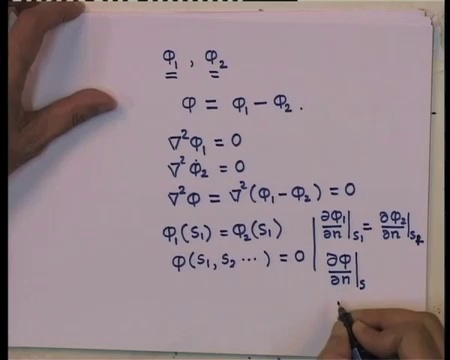 φ₁ , φ₂
φ = φ₁ − φ₂ .
∇²φ₁ = 0
∇²φ₂ = 0
∇²φ = ∇²(φ₁ − φ₂) = 0
φ₁(S₁) = φ₂(S₁) | ∂φ₁/∂n|S₁ = ∂φ₂/∂n|S₂
φ(S₁, S₂ ⋯ ) = 0 | ∂φ/∂n|S